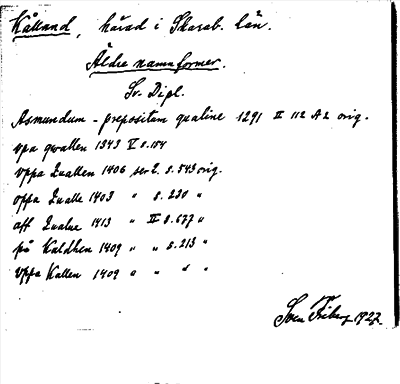 Kålland, härad i Skarab. län.
Äldre namnformer.
Sv. Dipl.
Asmundum - prepositum qualine 1291 II 112 A2 orig.
vpa qwallen 1343 V s. 184
vppa Qvallen 1406 ser 2. s. 543 orig.
oppa Qvalle 1403 " s. 230 "
aff Qvalue 1413 " II s. 677 "
på Kaldhen 1409 " " s. 213 "
vppa Kallen 1409 " " " "
Sven Friberg 1927.